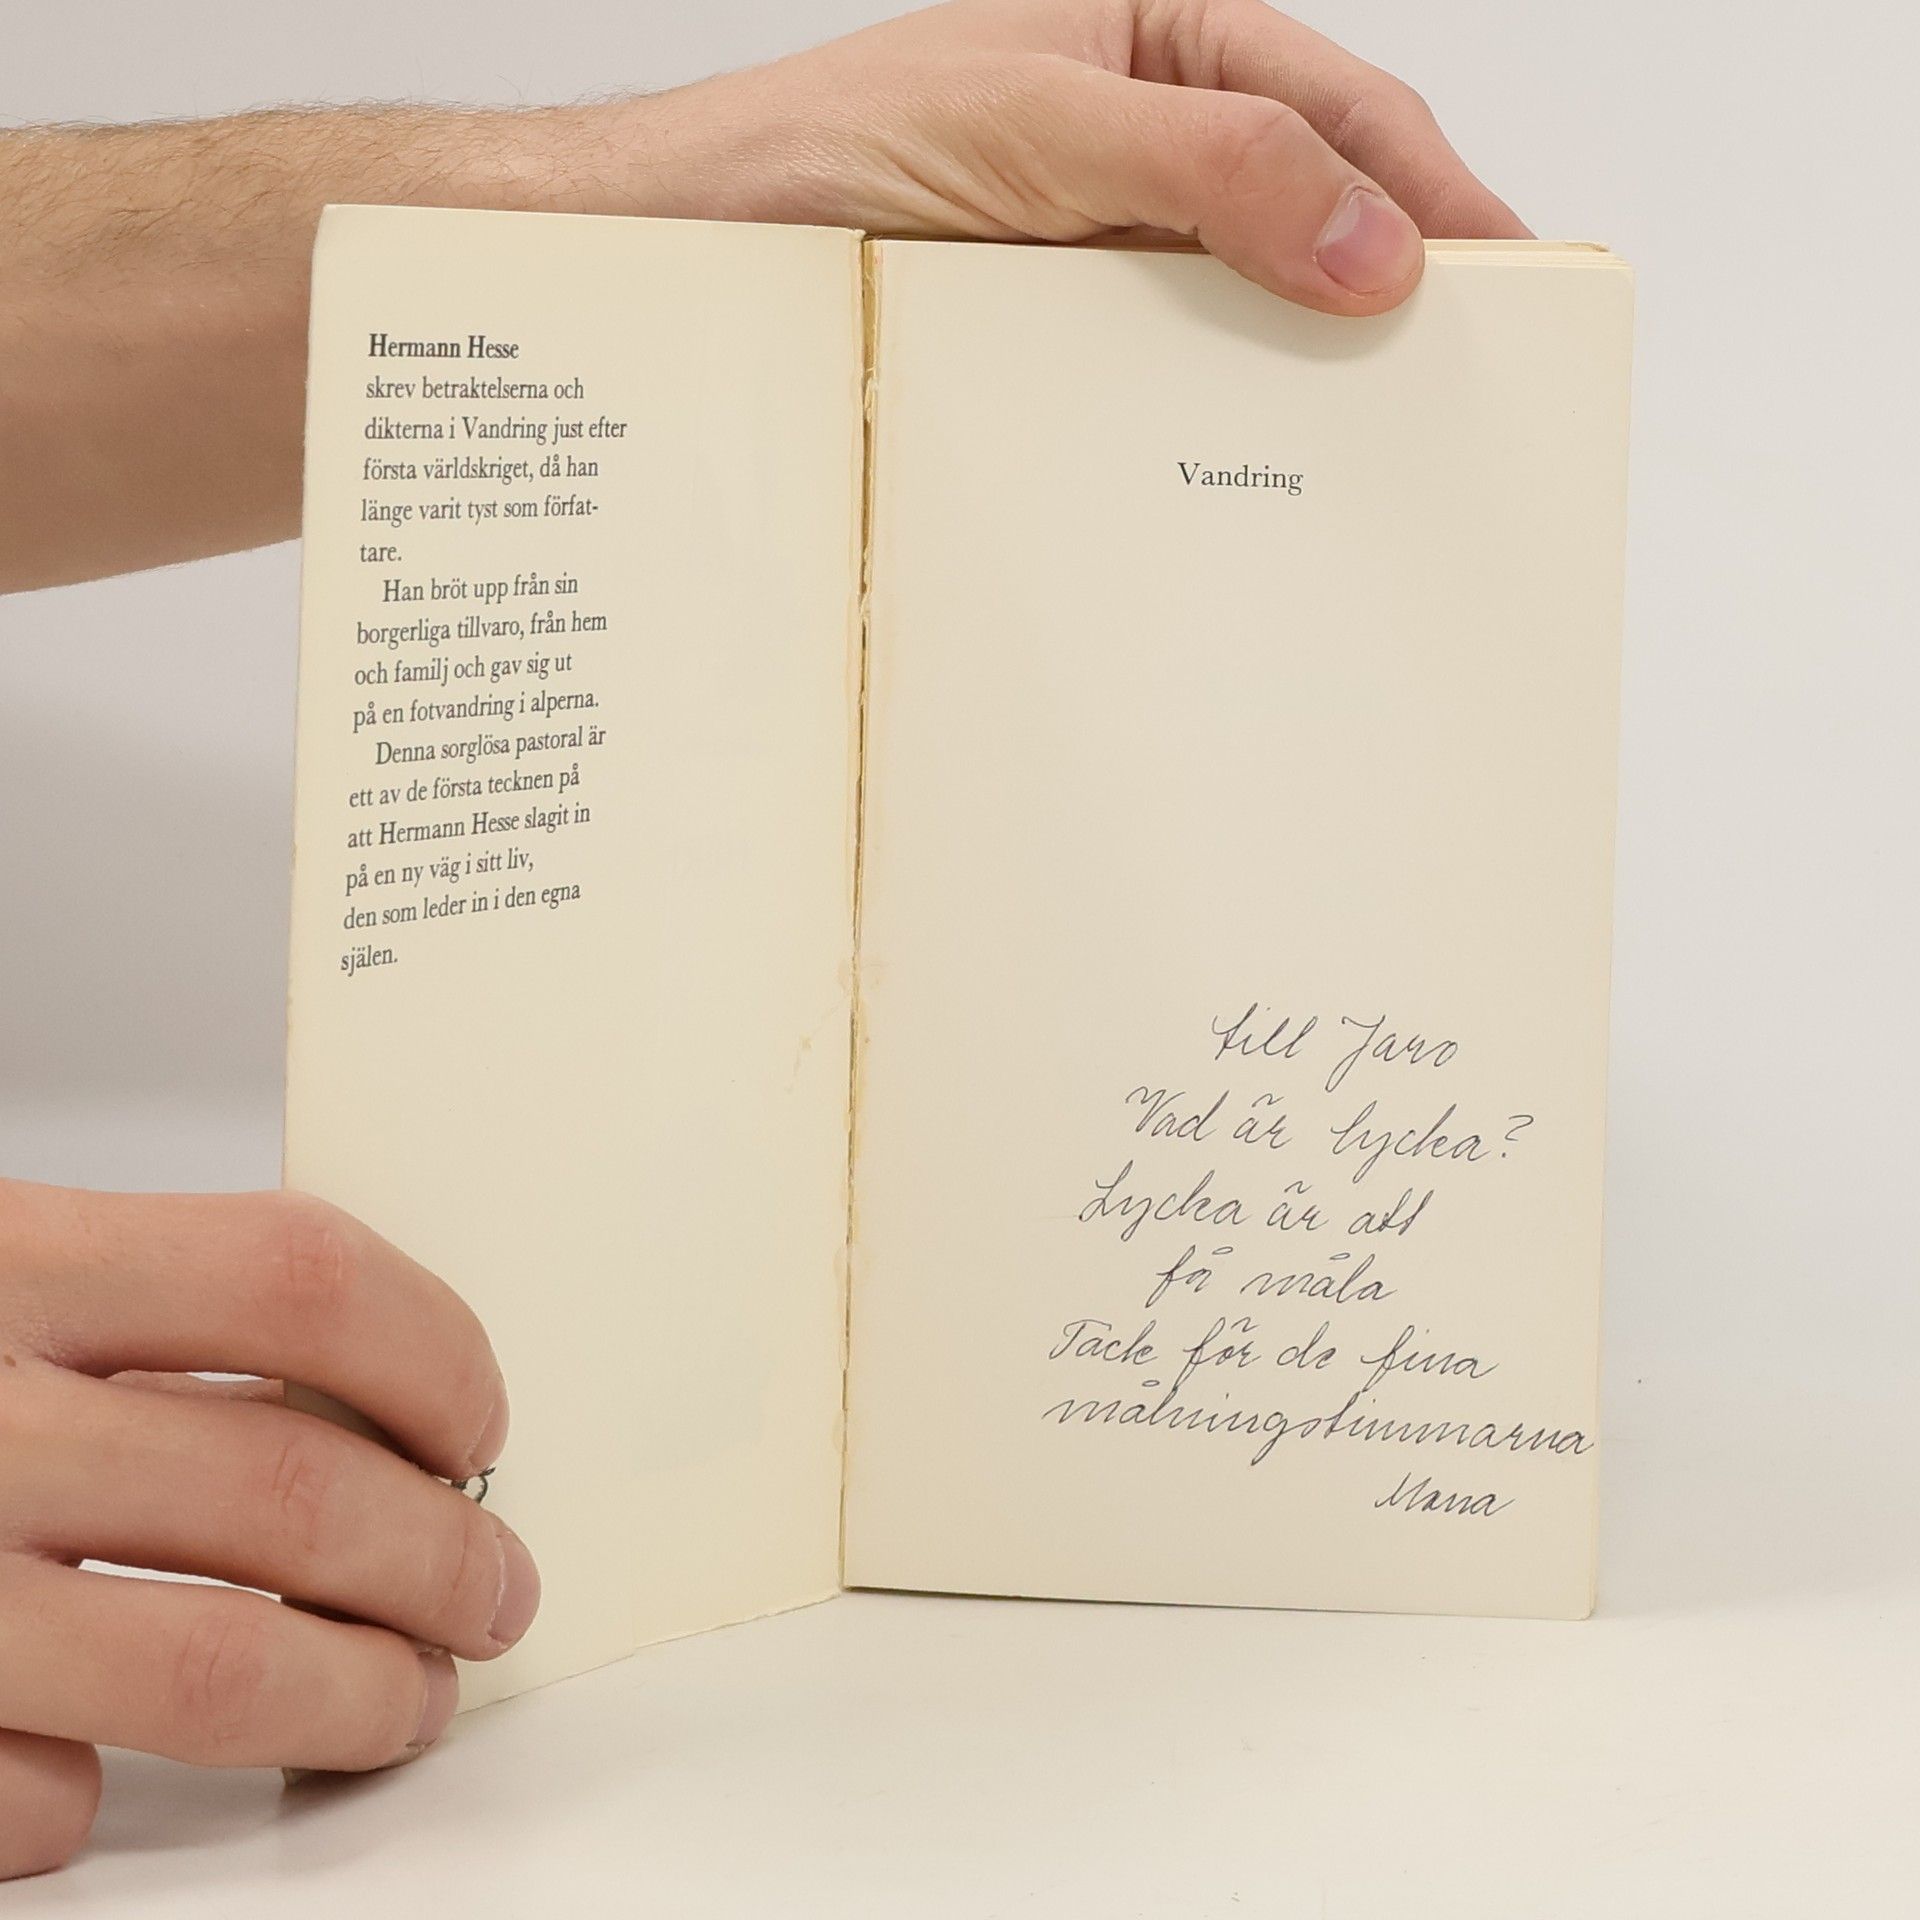 Hermann Hesse
skrev betraktelserna och
dikterna i Vandring just efter
första världskriget, då han
länge varit tyst som förfat-
tare.
Han bröt upp från sin
borgerliga tillvaro, från hem
och familj och gav sig ut
på en fotvandring i alperna.
Denna sorglösa pastoral är
ett av de första tecknen på
att Hermann Hesse slagit in
på en ny väg i sitt liv,
den som leder in i den egna
själen.
Vandring
till Jaro
Vad är lycka?
Lycka är att
få måla
Tack för de fina
målningstimmarna
Mona